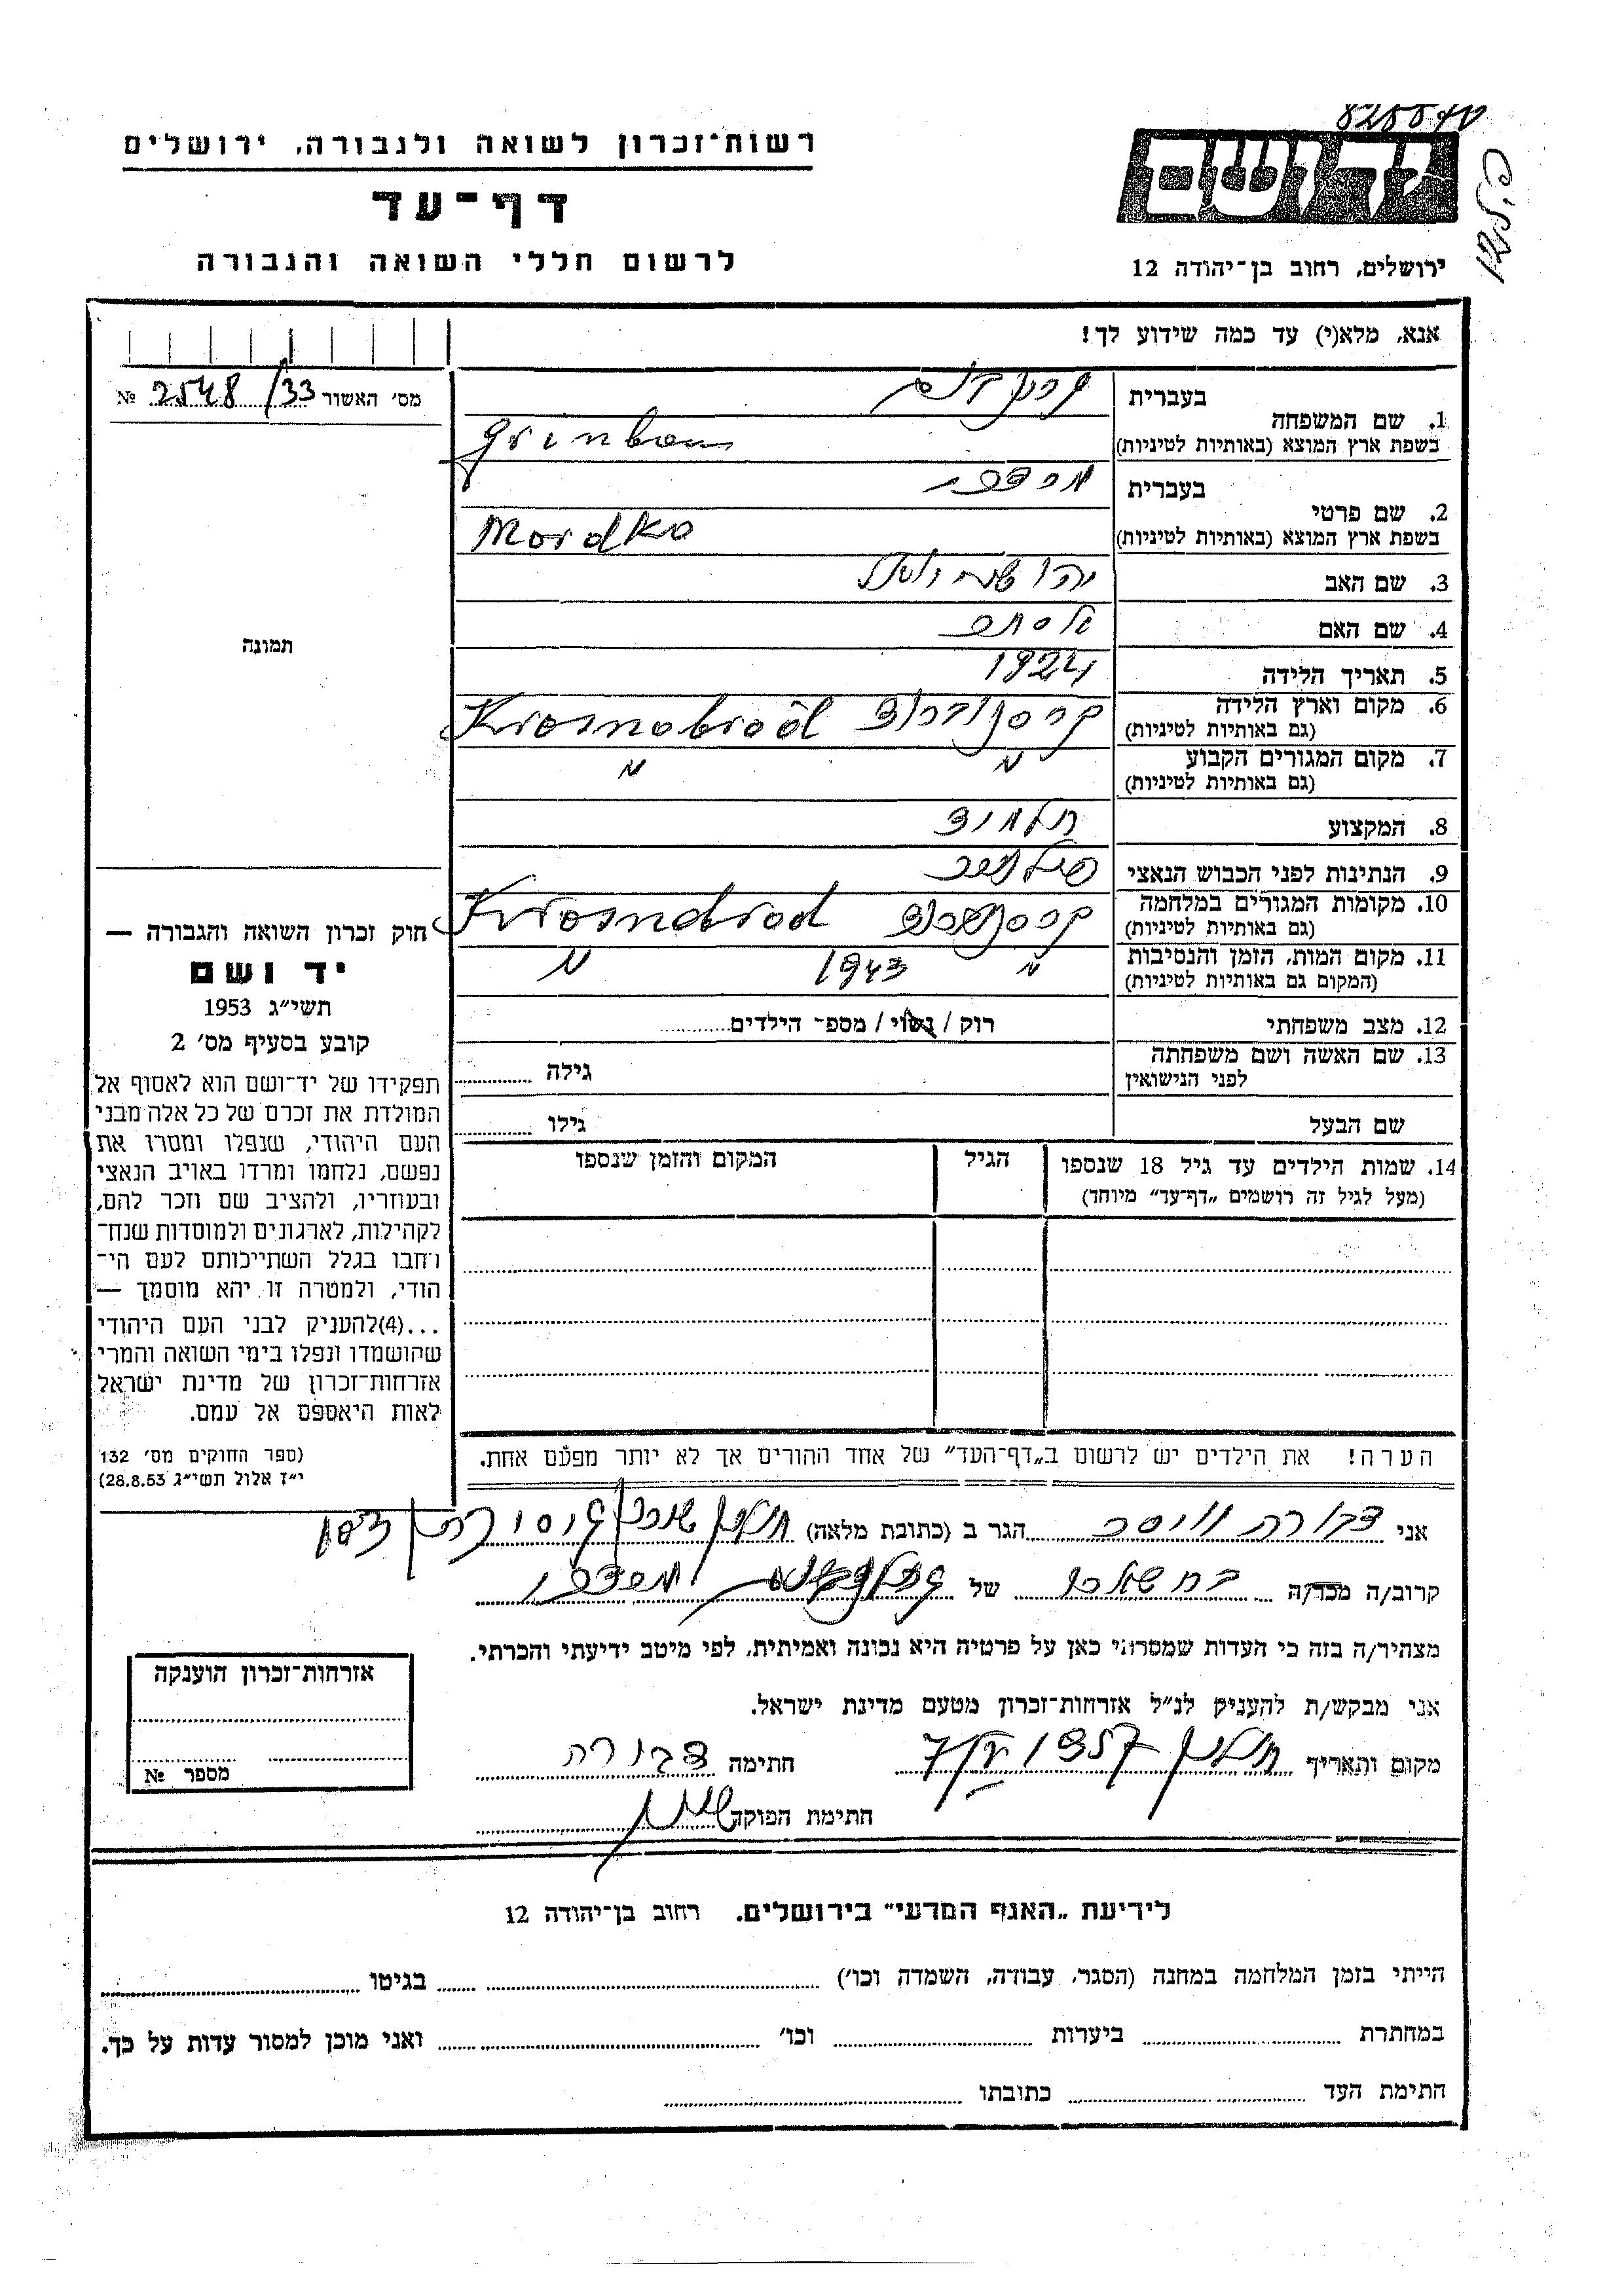 רשות-זכרון לשואה ולגבורה, ירושלים
דף-עד
לרשום חללי השואה והגבורה
ירושלים, רחוב בן-יהודה 12
אנא, מלא(י) עד כמה שידוע לך!
מס' האשור 2548/33 №
בעברית
1. שם המשפחה
בשפת ארץ המוצא (באותיות לטיניות)
בעברית
2. שם פרטי
בשפת ארץ המוצא (באותיות לטיניות) Mordko
3. שם האב
4. שם האם
5. תאריך הלידה 1924
6. מקום וארץ הלידה
(גם באותיות לטיניות)
7. מקום המגורים הקבוע " "
(גם באותיות לטיניות)
8. המקצוע תלמיד
9. הנתינות לפני הכבוש הנאצי
10. מקומות המגורים במלחמה
(גם באותיות לטיניות)
11. מקום המות, הזמן והנסיבות " 1943 "
(המקום גם באותיות לטיניות)
12. מצב משפחתי רוק / נשוי / מספ- הילדים
13. שם האשה ושם משפחתה גילה
לפני הנישואין
שם הבעל גילו
14. שמות הילדים עד גיל 18 שנספו הגיל המקום והזמן שנספו
(מעל לגיל זה רושמים „דף-עד" מיוחד)
הערה! את הילדים יש לרשום ב„דף-העד" של אחד ההורים אך לא יותר מפעם אחת.
תמונה
חוק זכרון השואה והגבורה —
יד ושם
תשי"ג 1953
קובע בסעיף מס' 2
תפקידו של יד-ושם הוא לאסוף אל
המולדת את זכרם של כל אלה מבני
העם היהודי, שנפלו ומסרו את
נפשם, נלחמו ומרדו באויב הנאצי
ובעוזריו, ולהציב שם וזכר להם,
לקהילות, לארגונים ולמוסדות שנח-
רחבו בגלל השתייכותם לעם הי-
הודי, ולמטרה זו יהא מוסמך —
...(4)להעניק לבני העם היהודי
שהושמדו ונפלו בימי השואה והמרי
אזרחות-זכרון של מדינת ישראל
לאות היאספם אל עמם.
(ספר החוקים מס' 132
י"ז אלול תשי"ג 28.8.53)
אני דבורה הגר ב (כתובת מלאה) חולון
קרוב/ה מכר/ה של
מצהיר/ה בזה כי העדות שמסרתי כאן על פרטיה היא נכונה ואמיתית, לפי מיטב ידיעתי והכרתי.
אני מבקש/ת להעניק לנ"ל אזרחות-זכרון מטעם מדינת ישראל.
מקום והתאריך חולון חתימה דבורה
חתימת הפוקד
אזרחות-זכרון הוענקה
מספר №
לידיעת „האגף המדעי" בירושלים. רחוב בן-יהודה 12
הייתי בזמן המלחמה במחנה (הסגר, עבודה, השמדה וכו') בגיטו
במחתרת ביערות וכו' ואני מוכן למסור עדות על כך.
חתימת העד כתובתו